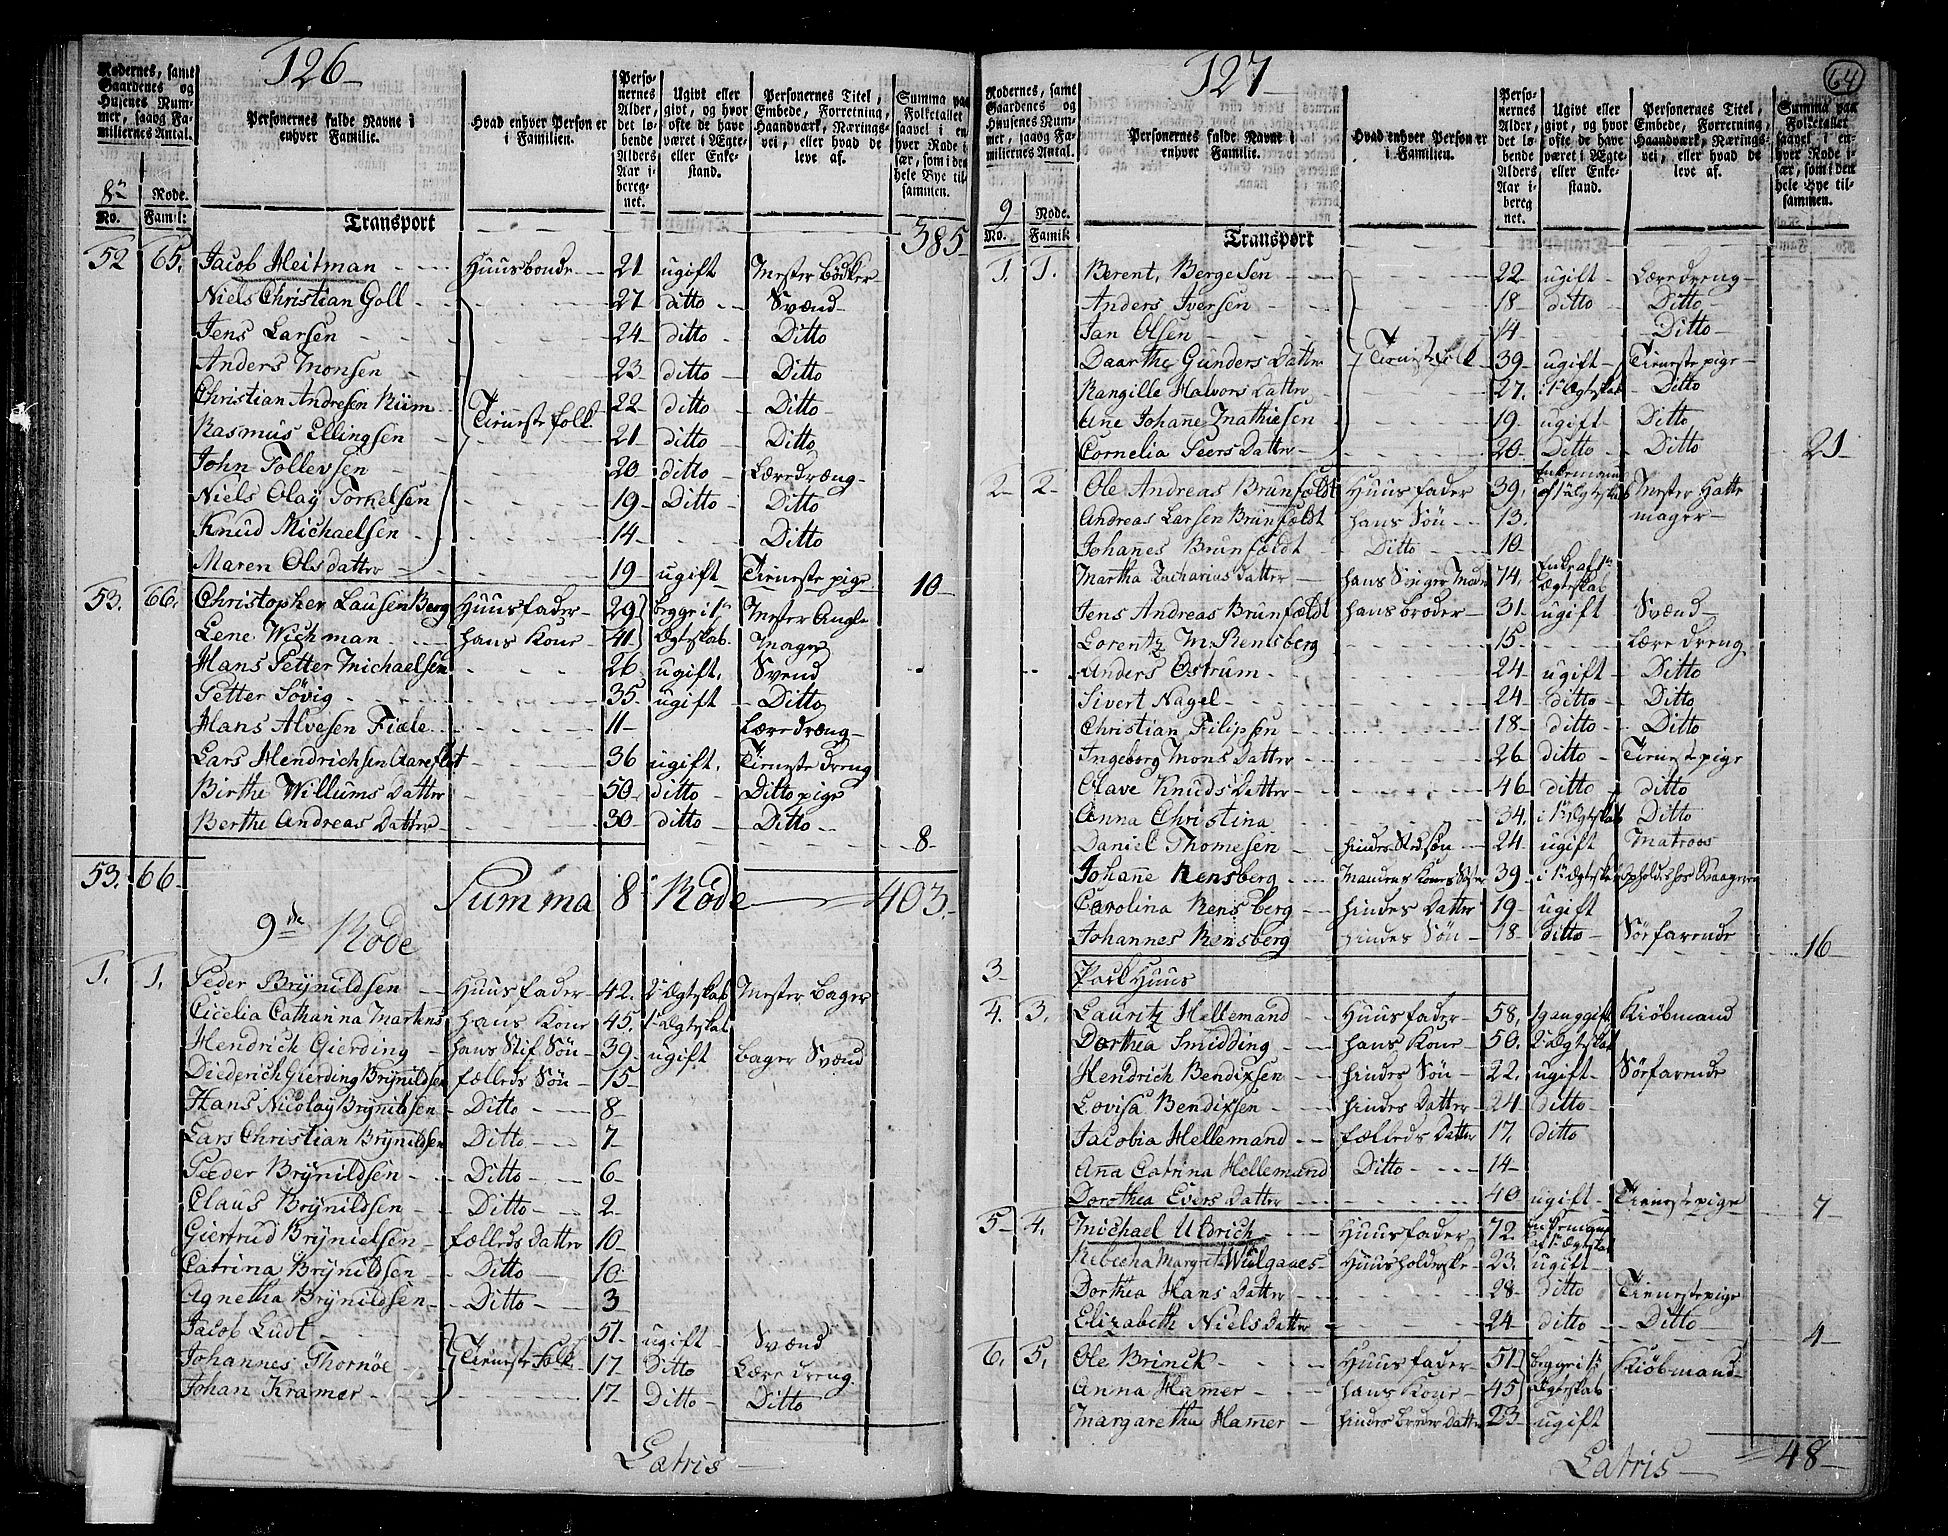 126
Rodernes, samt Gaardenes og Husenes Nummer, saavog Familiernes Antal.
Personernes fulde Navne i enhver Familie.
Hvad enhver Person er i Familien.
Personernes Alder, det løbende Alders Aar iberegnet.
Ugivt eller givt, og hvor ofte de have været i Ægte- eller Enkestand.
Personernes Titel, Embede, Forretning, Haandværk, Næringsvei, eller hvad de leve af.
Summa paa Folketallet saavel i enhver Rode især, som i den hele Bye tilsammen.
8de Rode.
No. Famil:
Transport 385
52 65. Jacob Heitman Huusbonde 21 ugift Mester Bødker
Niels Christian Goll 27 ditto Svænd
Jens Larsen 24 ditto Ditto
Anders Monsen 23 ditto Ditto
Christian Andresen Riim 22 ditto Ditto
Tieneste folk.
Rasmus Ellingsen 21 ditto Ditto
John Tollevsen 20 ditto Læredræng
Niels Olay Tornelsen 19 Ditto Ditto
Knud Michaelsen 14 Ditto
Maren Olsdatter 19 ugift Tieneste pige 10
53. 66. Christopher Lausen Berg Huusfader 29 begge i 1te Mester Angle
Lene Wichman hans Kone 41 Ægteskab. Mager
Hans Petter Michaelsen 26 ugift. Svend
Petter Søvig 35 ugift Ditto
Hans Alvesen Fiæle 11 Læredræng
Lars Hendrichsen 36 ugift. Tieneste dreng
Birthe Willums Datter 50 ditto Ditto pige
Berthe Andreas Datter 30 ditto Ditto 8
53. 66 Summa 8de Rode 403.
9de Rode
1. 1. Peder Brÿnildsen Huusfader 42. 2. Ægteskab Mester Bager
Cicelia Cathanna Martens hans Kone 45. 1. Ægteskab
Hendrich Gierding hans Stif Søn 39 ugift Bager Svænd
Diederich Gierding Brÿnildsen fælleds Søn 15
Hans Nicolaÿ Brÿnildsen Ditto 8
Lars Christian Brÿnildsen Ditto 7
Peder Brÿnildsen Ditto 6
Claus Brÿnildsen Ditto 2
Giertrud Brÿnielsen fælleds Datter 10
Catrina Brÿnildsen Ditto 10
Agnetha Brÿnildsen Ditto 3
Jacob Ludt 51 ugift Svænd
Johannes Thornøe Tieneste Folk 17 Ditto Lære dreng.
Johan Kramer 17 Ditto Ditto
Latris
127
64
Rodernes, samt Gaardenes og Huusenes Nummer, saavog Familiernes Antal.
Personernes fulde Navne i enhver Familie.
Hvad enhver Person er i Familien.
Personernes Alder, det løbende Alders Aar iberegnet.
Ugivt eller givt, og hvor ofte de have været i Ægte- eller Enkestand.
Personernes Titel, Embede, Forretning, Haandværk, Næringsvei, eller hvad de leve af.
Summa paa Folketallet saavel i enhver Rode især, som i den hele Bye tilsammen.
9 Rode.
No. Famil:
Transport
1. 1. Berent, Bergesen 22 ugift Læredreng
Anders Iversen 18 ditto Ditto
Jan Olsen 14 Ditto
Daarthe Gunders Datter Tieneste folk 39 ugift Tieneste pige
Rangille Halvors Datter 27. i 1te Ægteskab Ditto
Ane Johane Mathiesen 19. ugift Ditto
Cornelia Peers Datter 20 Ditto Ditto 21
2 2 Ole Andreas Brunfældt Huusfader 39. Enkemand af 1te Ægteskab Mester Hatte
mager
Andreas Larsen Brunfældt hans Søn 13.
Johannes Brunfældt Ditto 10
Martha Zacharias Datter hans Svigermoder 74. Enke af 1te Ægteskab
Jens Andreas Brunfældt hans broder 31 ugift Svænd
Lorentz M. Rensberg 15 Lære dreng
Anders Østrum 24 ugift Ditto
Sivert Nagel 24 ditto Ditto
Christian Filipsen 18 ditto Ditto
Ingeborg Mons Datter 26 ditto Tienestepige
Olave Knuds Datter 46 ditto ditto
Anna Christina 34. i 1te Ægteskab Ditto
Daniel Thomesen hindes Søn 24 ugift Matroos
Johane Rensberg Mandens Kones Søster 39 i 1te Ægteskab opholdes hos Svaageren
Carolina Rensberg hindes Datter 19 ugift
Johannes Rensberg hindes Søn 18 ditto Søefarende 16
3 Huus
4. 3. Lauritz Hellemand Huusfader 58. 1 gang gift Kiøbmand
Dorthea Smidding hans Kone 50. 2. Ægteskab
Hendrich Bendixsen hindes Søn 22. ugift Søefarende
Lovisa Bendixsen hindes Datter 24 ditto
Jacobia Hellemand fælleds Datter 17. ditto
Ana Catrina Hellemand Ditto 14
Dorothea Evers Datter 40 ugift Tienestepige 7
5 4. Michael Uldrich Huusfader 72. Enkemand af 1te Ægteskab
Rebecha Margret Wulgaaes Huusholderske 23. ugift
Dorthea Hans Datter 28 Ditto Tienestepige
Elizabeth Niels Datter 24 ditto Ditto 4
6. 5. Ole Brinck Huusfader 51 begge i 1te Kiøbmand
Anna Hamer hans Kone 45 Ægteskab
Margaretha Hamer hindes broder Datter 23 ugift
Latris 48